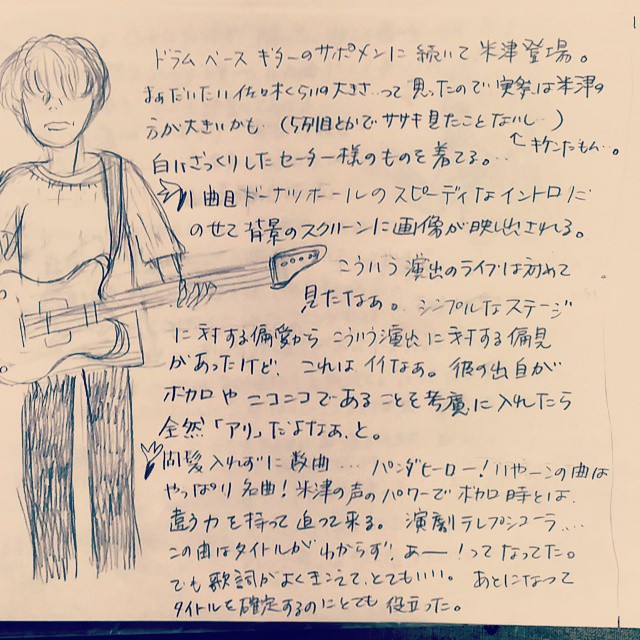 ドラム ベース ギターのサポメンに 続いて 米津登場。
まぁだいたい佐々木くらいの大きさ…って思ったので実際は米津の
方が大きいかも…(5列目とかでササキ見たことないし…)
↑キケンだもん…。
白いざっくりしたセーター様のものを着てる。…
1曲目ドーナツホールのスピーディなイントロに
のせて背景のスクリーンに画像が映し出される。
こういう演出のライブは初めて
見たなぁ。シンプルなステージ
に対する偏愛から こういう演出に対する偏見
があったけど、これはイイなぁ。彼の出自が
ボカロやニコニコであることを考慮に入れたら
全然「アリ」だよなぁ、と。
間髪入れずに数曲… パンダヒーロー!いやーこの曲は
やっぱり名曲!米津の声のパワーでボカロ時とは、
違う力を持って迫って来る。演劇テレプシコーラ…
この曲はタイトルがわからず!、あー!ってなってた。
でも歌詞がよくきこえて、とてもいい。あとになって
タイトルを確定するのにとても 役立った。